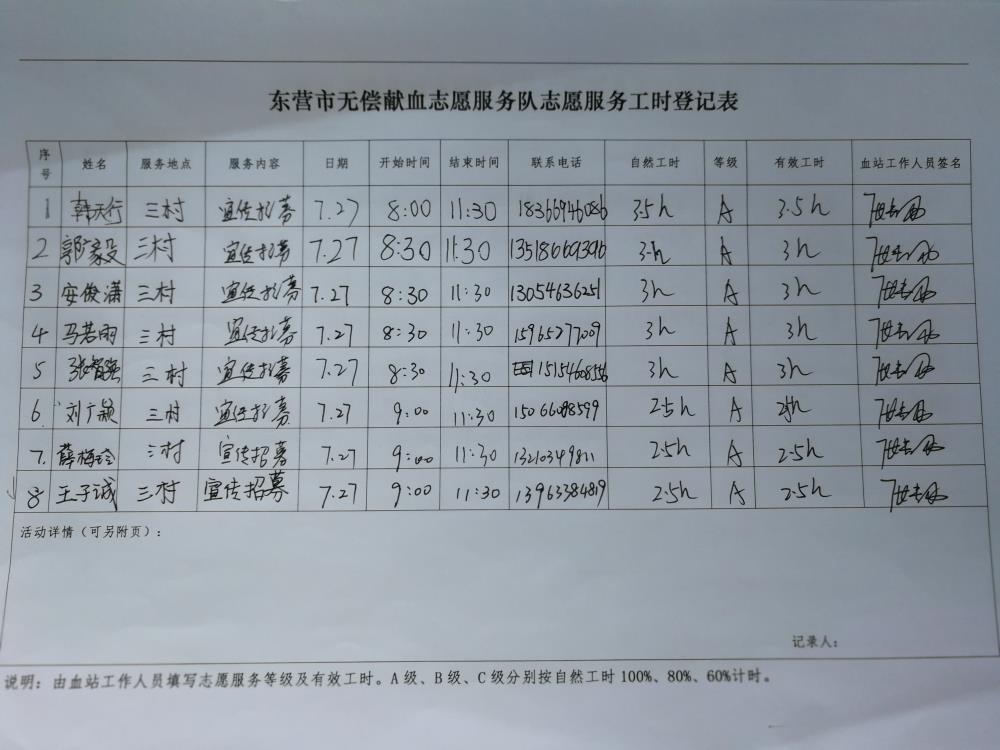 东营市无偿献血志愿服务队志愿服务工时登记表
序号 姓名 服务地点 服务内容 日期 开始时间 结束时间 联系电话 自然工时 等级 有效工时 血站工作人员签名
1 韩天行 三村 宣传招募 7.27 8:00 11:30 18366946086 3.5h A 3.5h
2 郭家毅 三村 宣传招募 7.27 8:30 11:30 3h A 3h
3 安俊潇 三村 宣传招募 7.27 8:30 11:30 13054636251 3h A 3h
4 马若雨 三村 宣传招募 7.27 8:30 11:30 15965277009 3h A 3h
5 张智强 三村 宣传招募 7.27 8:30 11:30 15154608556 3h A 3h
6 刘广颖 三村 宣传招募 7.27 9:00 11:30 15066098599 2.5h A 2.5h
7. 薛梅玲 三村 宣传招募 7.27 9:00 11:30 13210349811 2.5h A 2.5h
8 王子诚 三村 宣传招募 7.27 9:00 11:30 13963384819 2.5h A 2.5h
活动详情（可另附页）：
记录人：
说明：由血站工作人员填写志愿服务等级及有效工时。A级、B级、C级分别按自然工时100%、80%、60%计时。